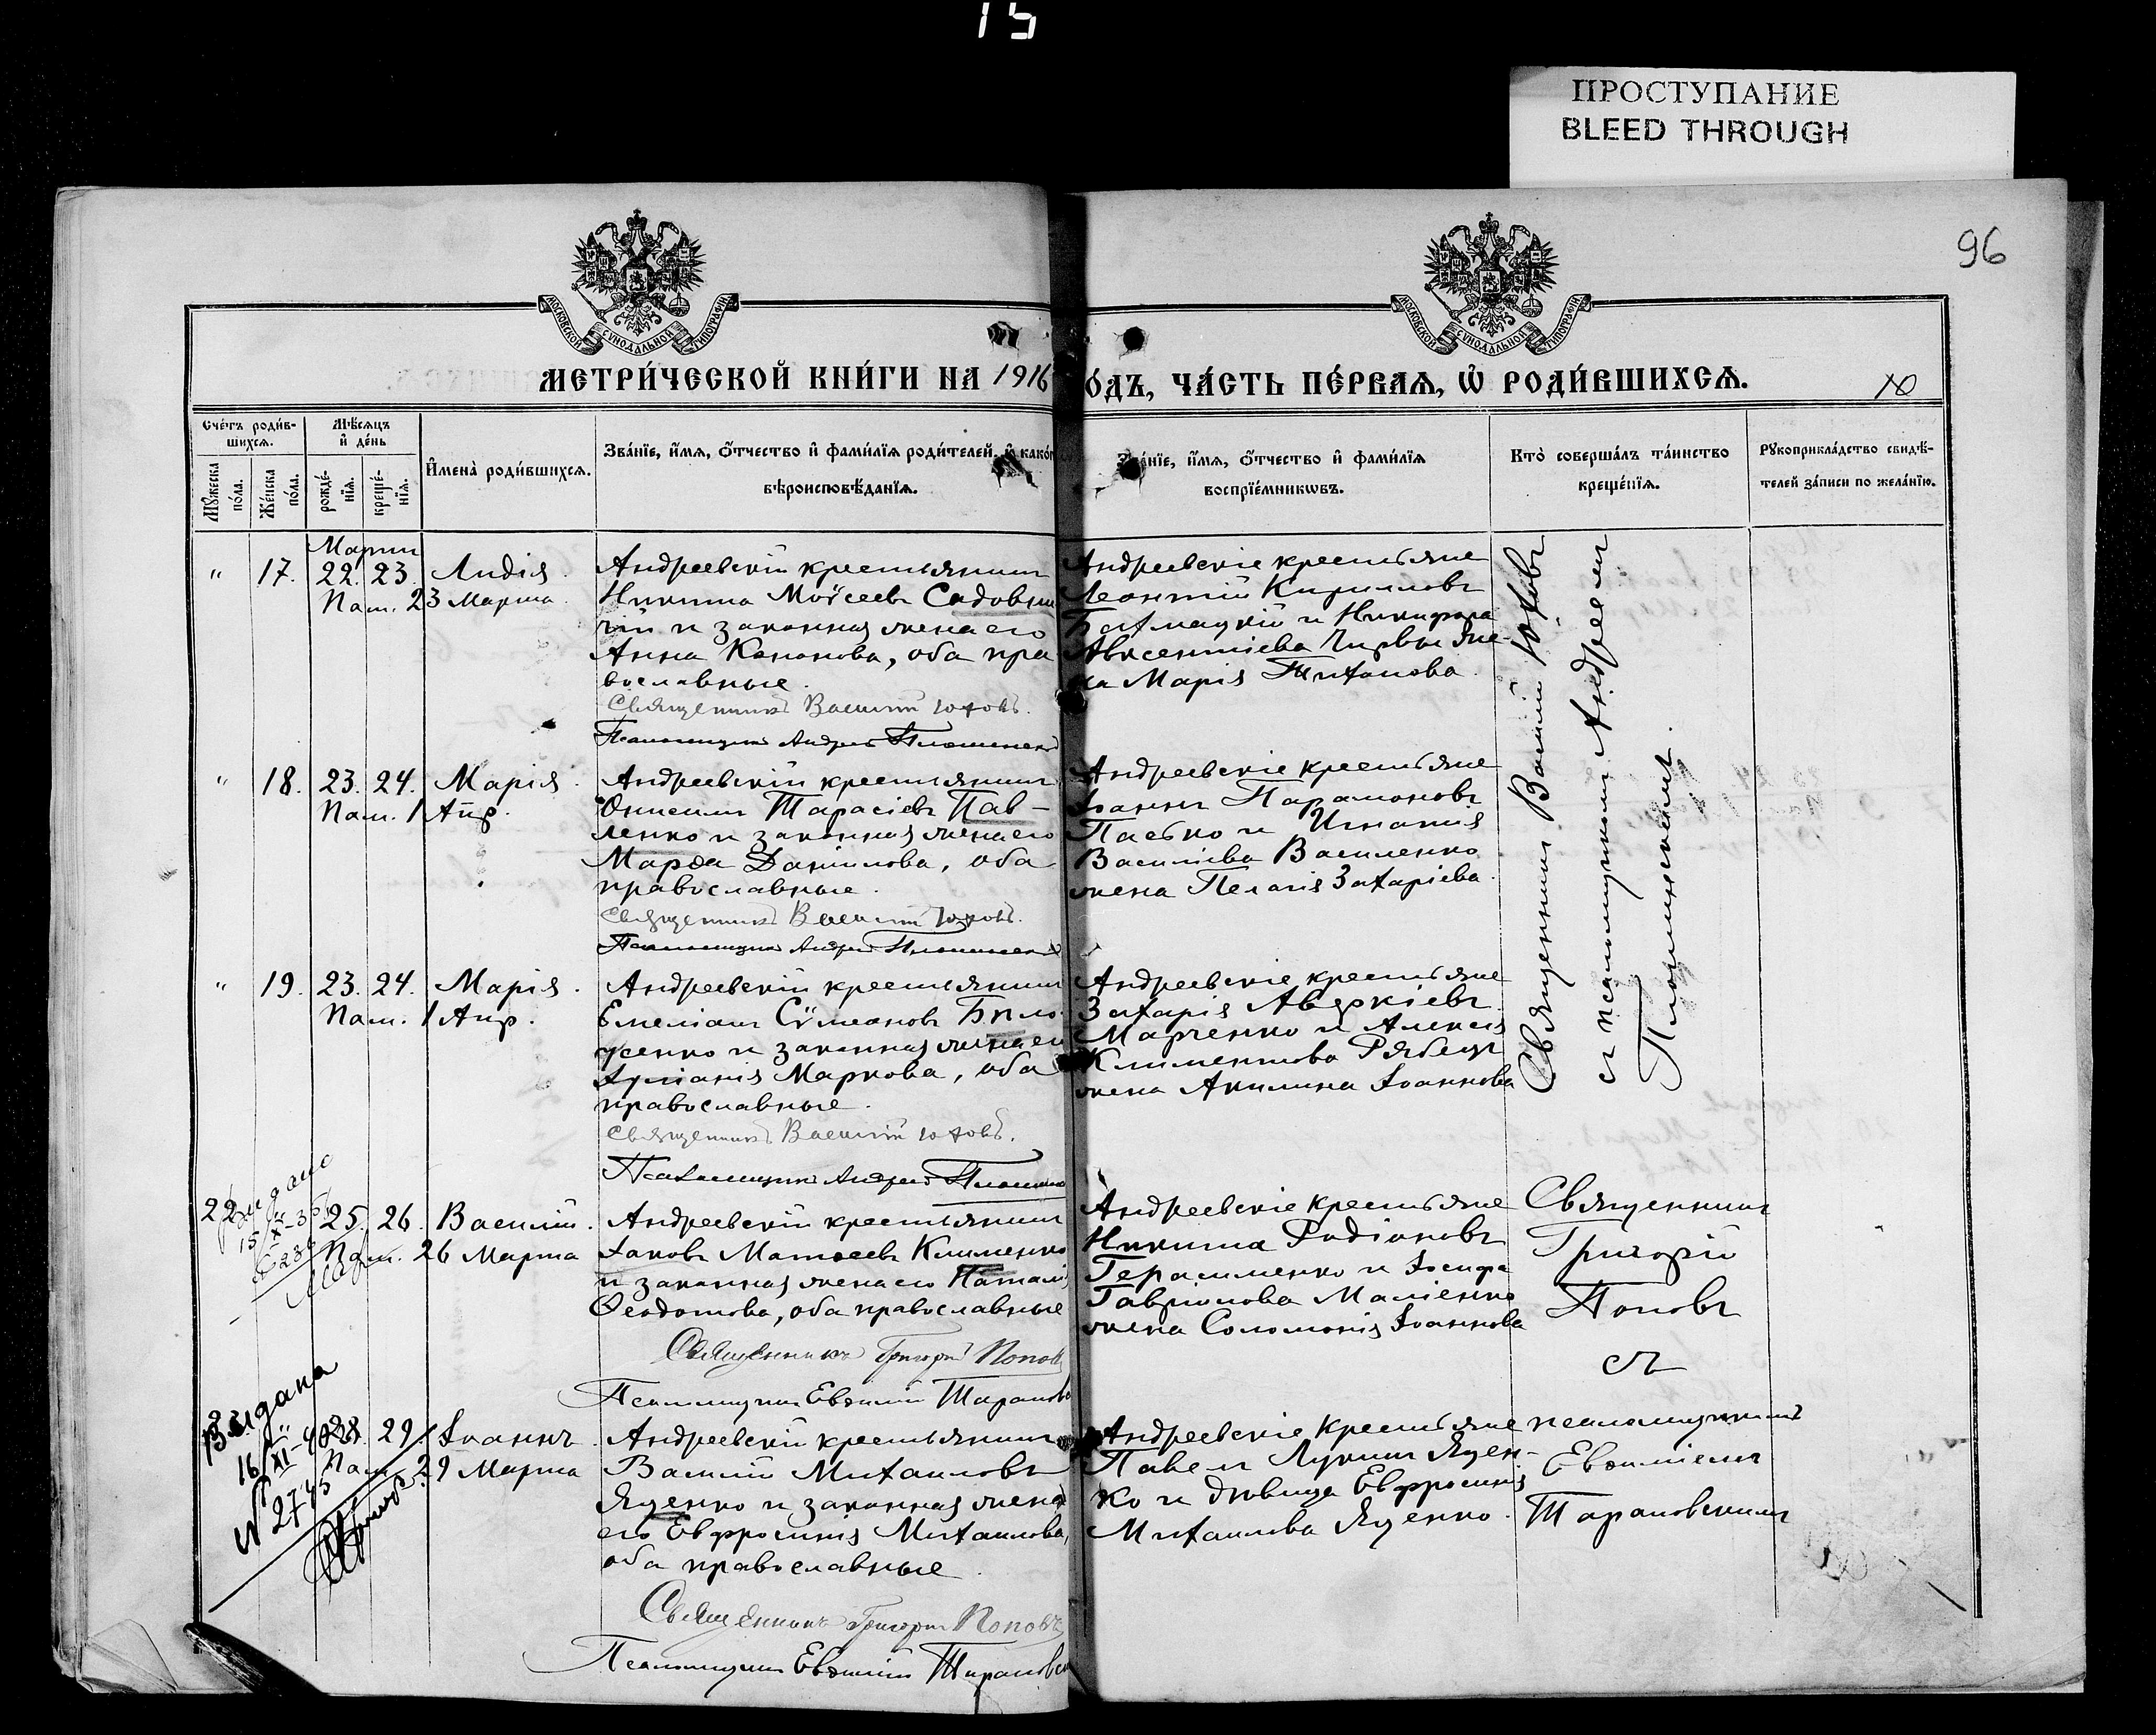 15
ПРОСТУПАНИЕ
BLEED THROUGH
96
МОСКОВСКОЙ СѴНОДАЛЬНОЙ ТИПОГРАФІИ
МОСКОВСКОЙ СѴНОДАЛЬНОЙ ТИПОГРАФІИ
МЕТРИ́ЧЕСКОЙ КНИ́ГИ НА 1916
О́ДЪ, ЧА́СТЬ ПЕ́РВАЯ, Ѡ҆ РОДИ́ВШИХСЯ.
10
Сче́тъ роди́в-
шихся.
Мѣ́сяцъ
и҆ де́нь
Мꙋ́жеска
по́ла.
Же́нска
по́ла.
рожде́-
нїя.
креще́-
нїя.
И҆мена̀ роди́вшихся.
Зва́нїе, и҆́мя, ѻ҆́тчество и҆ фами́лїя роди́телей, и҆ како́г
вѣроисповѣ́данїя.
Зва́нїе, и҆́мя, ѻ҆́тчество и҆ фами́лїя
воспрїе́мникѡвъ.
Кто̀ соверша́лъ та́инство
креще́нїя.
Рꙋкоприкла́дство свидѣ́-
телей за́писи по жела́нїю.
Марта
" 17. 22. 23. Лидія.
Пам. 23 Марта.
Андреевскій крестьянинъ
Никита Моѵсеевъ Садовни
чій и законная жена его
Анна Кононова, оба пра
вославные.
Священникъ Василій Юховъ.
Псаломщикъ Андрей
Андреевскіе крестьяне
Леонтій Кирилловъ
Бахмацкій и Никифора
Авксентіева
на Марія Тихонова.
Священникъ Василій Юховъ
съ псаломщикомъ Андреемъ
" 18. 23. 24. Марія.
Пам. 1 Апр.
Андреевскій крестьянинъ
Онисимъ Тарасіевъ Пав-
ленко и законная жена его
Марѳа Даніилова, оба
православные.
Священникъ Василій Юховъ.
Псаломщикъ Андрей
Андреевскіе крестьяне
Іоаннъ Парамоновъ
Пасько и Игнатія
Василіева Василенко
жена Пелагія Захаріева.
" 19. 23. 24. Марія.
Пам. 1 Апр.
Андреевскій крестьянинъ
Емеліанъ Сѵмеоновъ Било
усенко и законная жена его
Іуліанія Маркова, оба
православные.
Священникъ Василій Юховъ.
Псаломщикъ Андрей
Андреевскіе крестьяне
Захарія Аверкіевъ
Марченко и Алексія
Климентова Рябецъ
жена Акилина Іоаннова
22 25. 26. Василій.
Пам. 26 Марта
Андреевскій крестьянинъ
Іаковъ Матѳеевъ Клименко
и законная жена его Наталія
Ѳеодотова, оба православные
Священникъ Григорій Поповъ
Псаломщикъ Евѳимій Тарановс
Андреевскіе крестьяне
Никита Родіоновъ
Герасименко и Іосифа
Гавріилова Маліенко
жена Соломонія Іоаннова
Священникъ
Григорій
Поповъ
съ
псаломщикомъ
Евѳиміемъ
Тарановскимъ
Видана
16/XI-
N 2745
28. 29. Іоаннъ.
Пам. 29 Марта
Андреевскій крестьянинъ
Василій Михаиловъ
Яценко и законная жена
его Евфросинія Михаилова,
оба православные.
Священникъ Григорій Поповъ
Псаломщикъ Евѳимій Тарановск
Андреевскіе крестьяне
Павелъ Лукинъ Яцен-
ко и дѣвица Евфросинія
Михаилова Яценко.